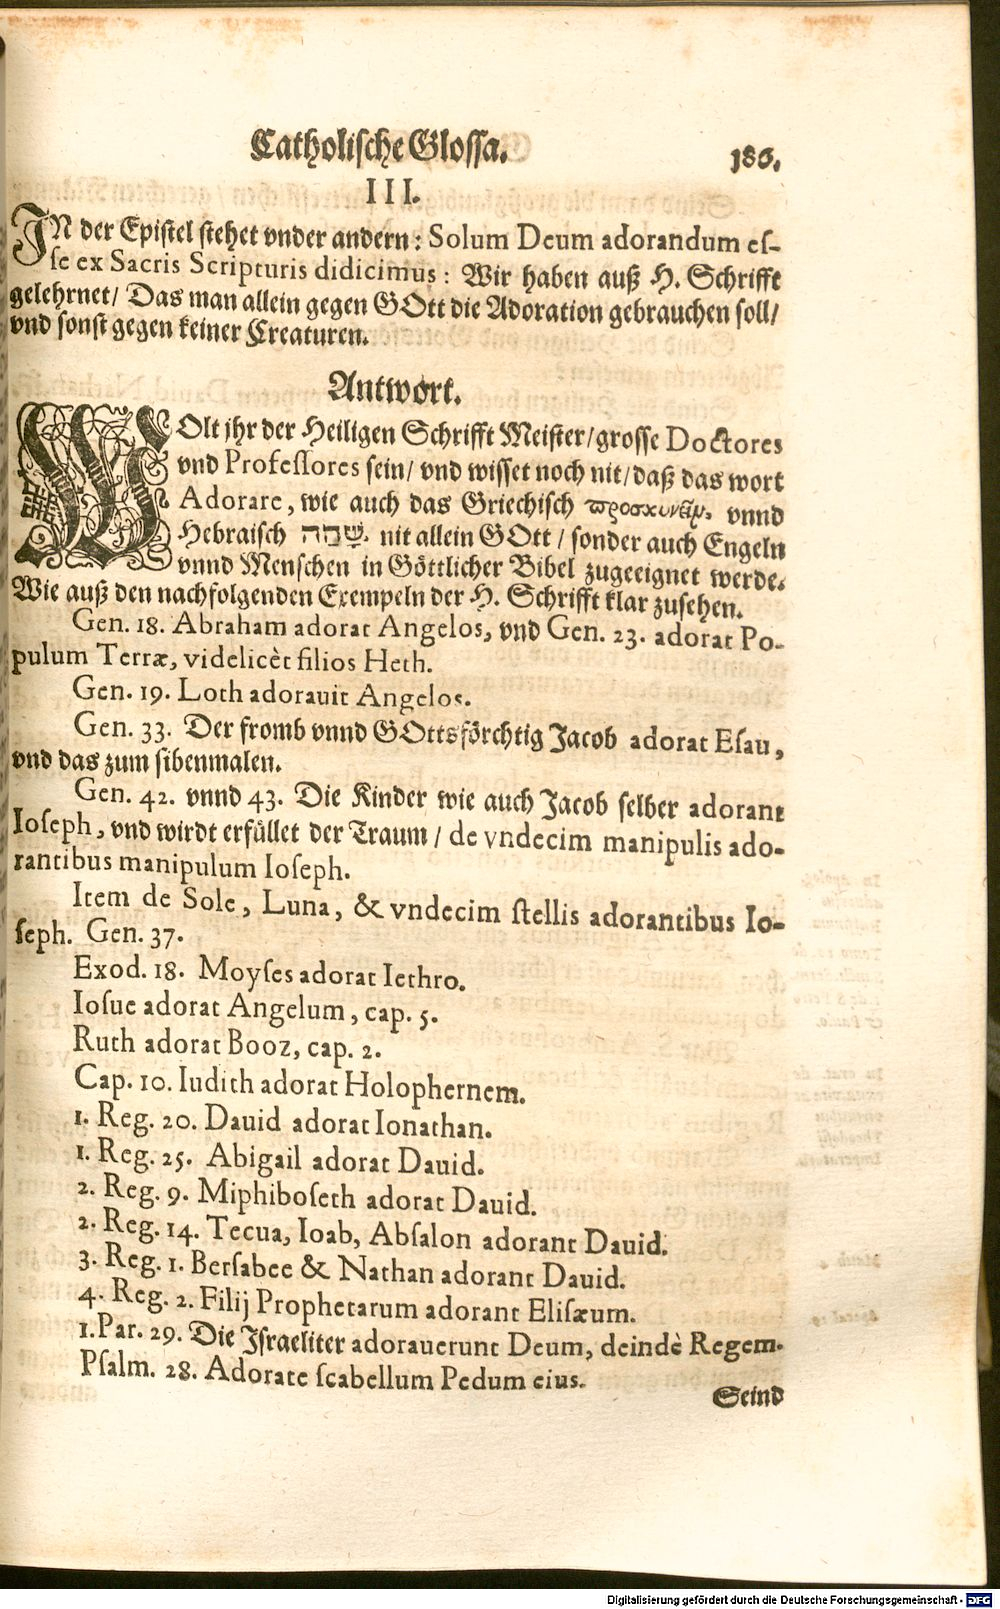 Catholische Glossa.
186.
III.
IN der Epistel stehet vnder andern: Solum Deum adorandum es-
se ex Sacris Scripturis didicimus: Wir haben auß H. Schrifft
gelehrnet/ Das man allein gegen GOtt die Adoration gebrauchen soll/
vnd sonst gegen keiner Creaturen.
Antwort.
WOlt jhr der Heiligen Schrifft Meister/grosse Doctores
vnd Professores sein/ vnd wisset noch nit/daß das wort
Adorare, wie auch das Griechisch προσκυνεῖν, vnnd
Hebraisch שָׁחָה nit allein GOtt/ sonder auch Engeln
vnnd Menschen in Göttlicher Bibel zugeeignet werde.
Wie auß den nachfolgenden Exempeln der H. Schrifft klar zusehen.
Gen. 18. Abraham adorat Angelos, vnd Gen. 23. adorat Po-
pulum Terræ, videlicèt filios Heth.
Gen. 19. Loth adorauit Angelos.
Gen. 33. Der fromb vnnd GOttsförchtig Jacob adorat Esau,
vnd das zum sibenmalen.
Gen. 42. vnnd 43. Die Kinder wie auch Jacob selber adorant
Ioseph, vnd wirdt erfüllet der Traum/ de vndecim manipulis ado-
rantibus manipulum Ioseph.
Item de Sole, Luna, & vndecim stellis adorantibus Io-
seph. Gen. 37.
Exod. 18. Moyses adorat Iethro.
Iosue adorat Angelum, cap. 5.
Ruth adorat Booz, cap. 2.
Cap. 10. Iudith adorat Holophernem.
1. Reg. 20. Dauid adorat Ionathan.
1. Reg. 25. Abigail adorat Dauid.
2. Reg. 9. Miphiboseth adorat Dauid.
2. Reg. 14. Tecua, Ioab, Absalon adorant Dauid.
3. Reg. 1. Bersabee & Nathan adorant Dauid.
4. Reg. 2. Filij Prophetarum adorant Elisæum.
1.Par. 29. Die Israeliter adorauerunt Deum, deindè Regem.
Psalm. 28. Adorate scabellum Pedum eius.
Seind
Digitalisierung gefördert durch die Deutsche Forschungsgemeinschaft - DFG